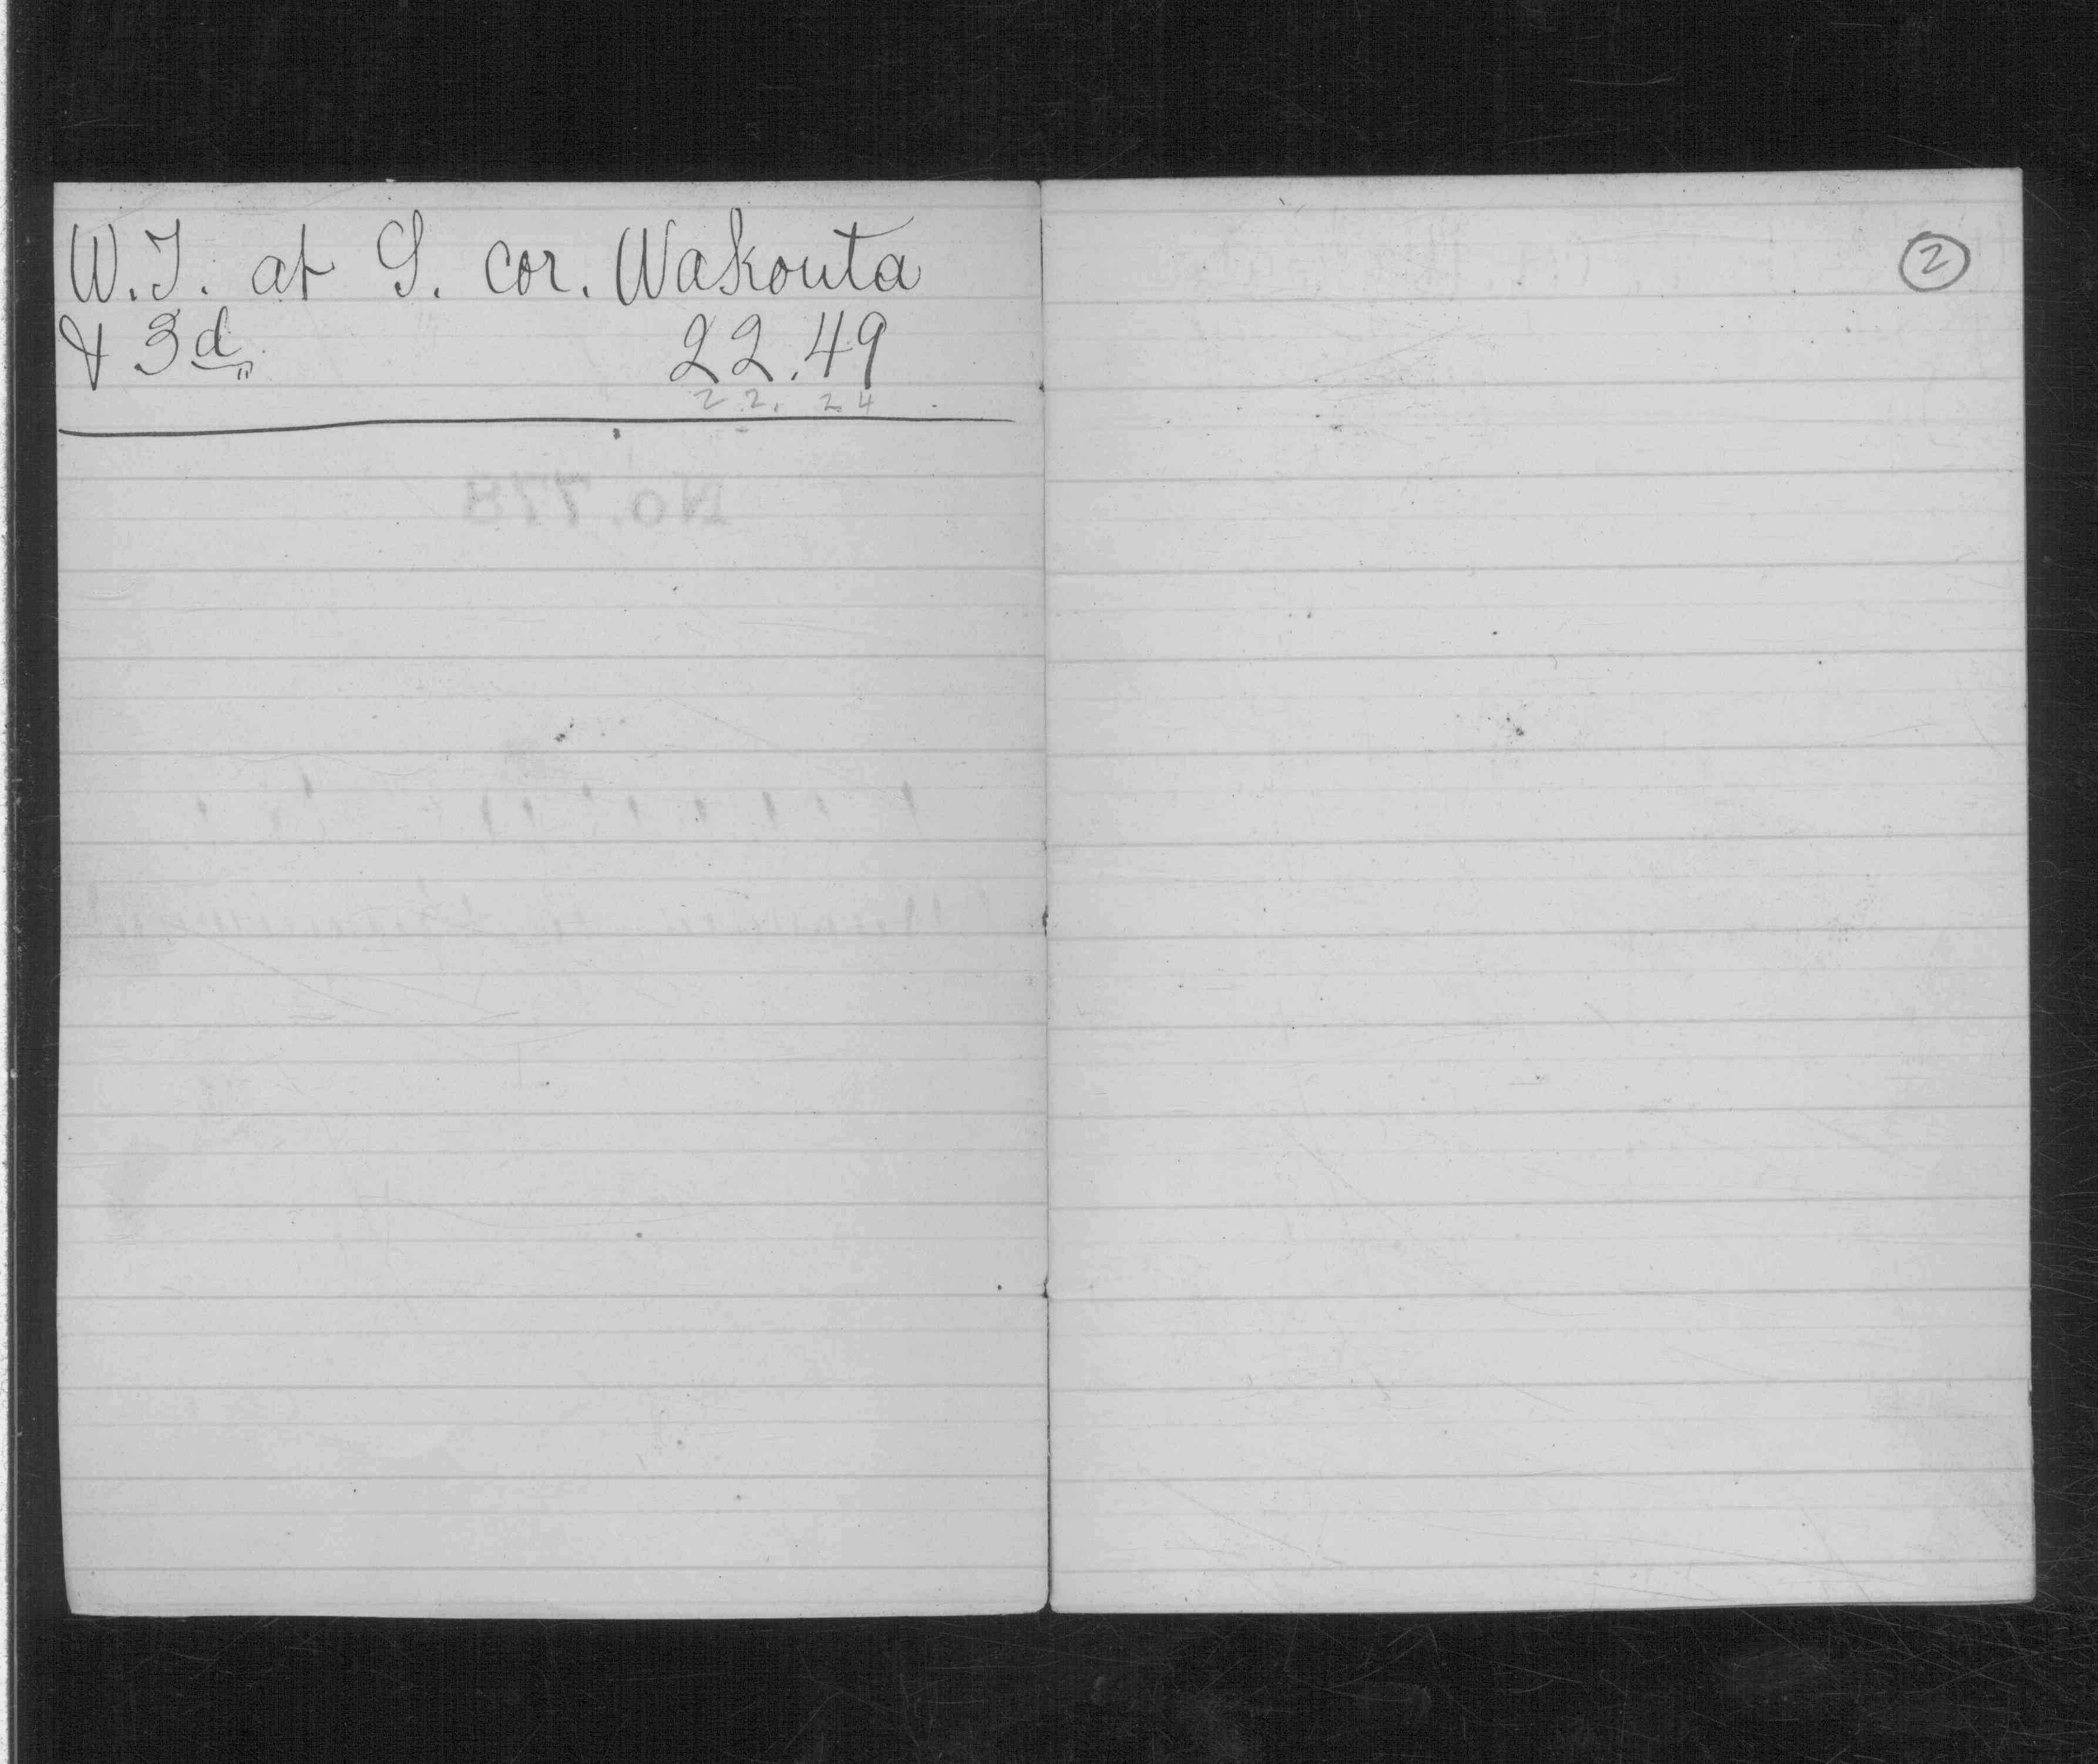 W.T. at S. cor. Wakouta
& 3d 22.49
22.24
No. 778
2